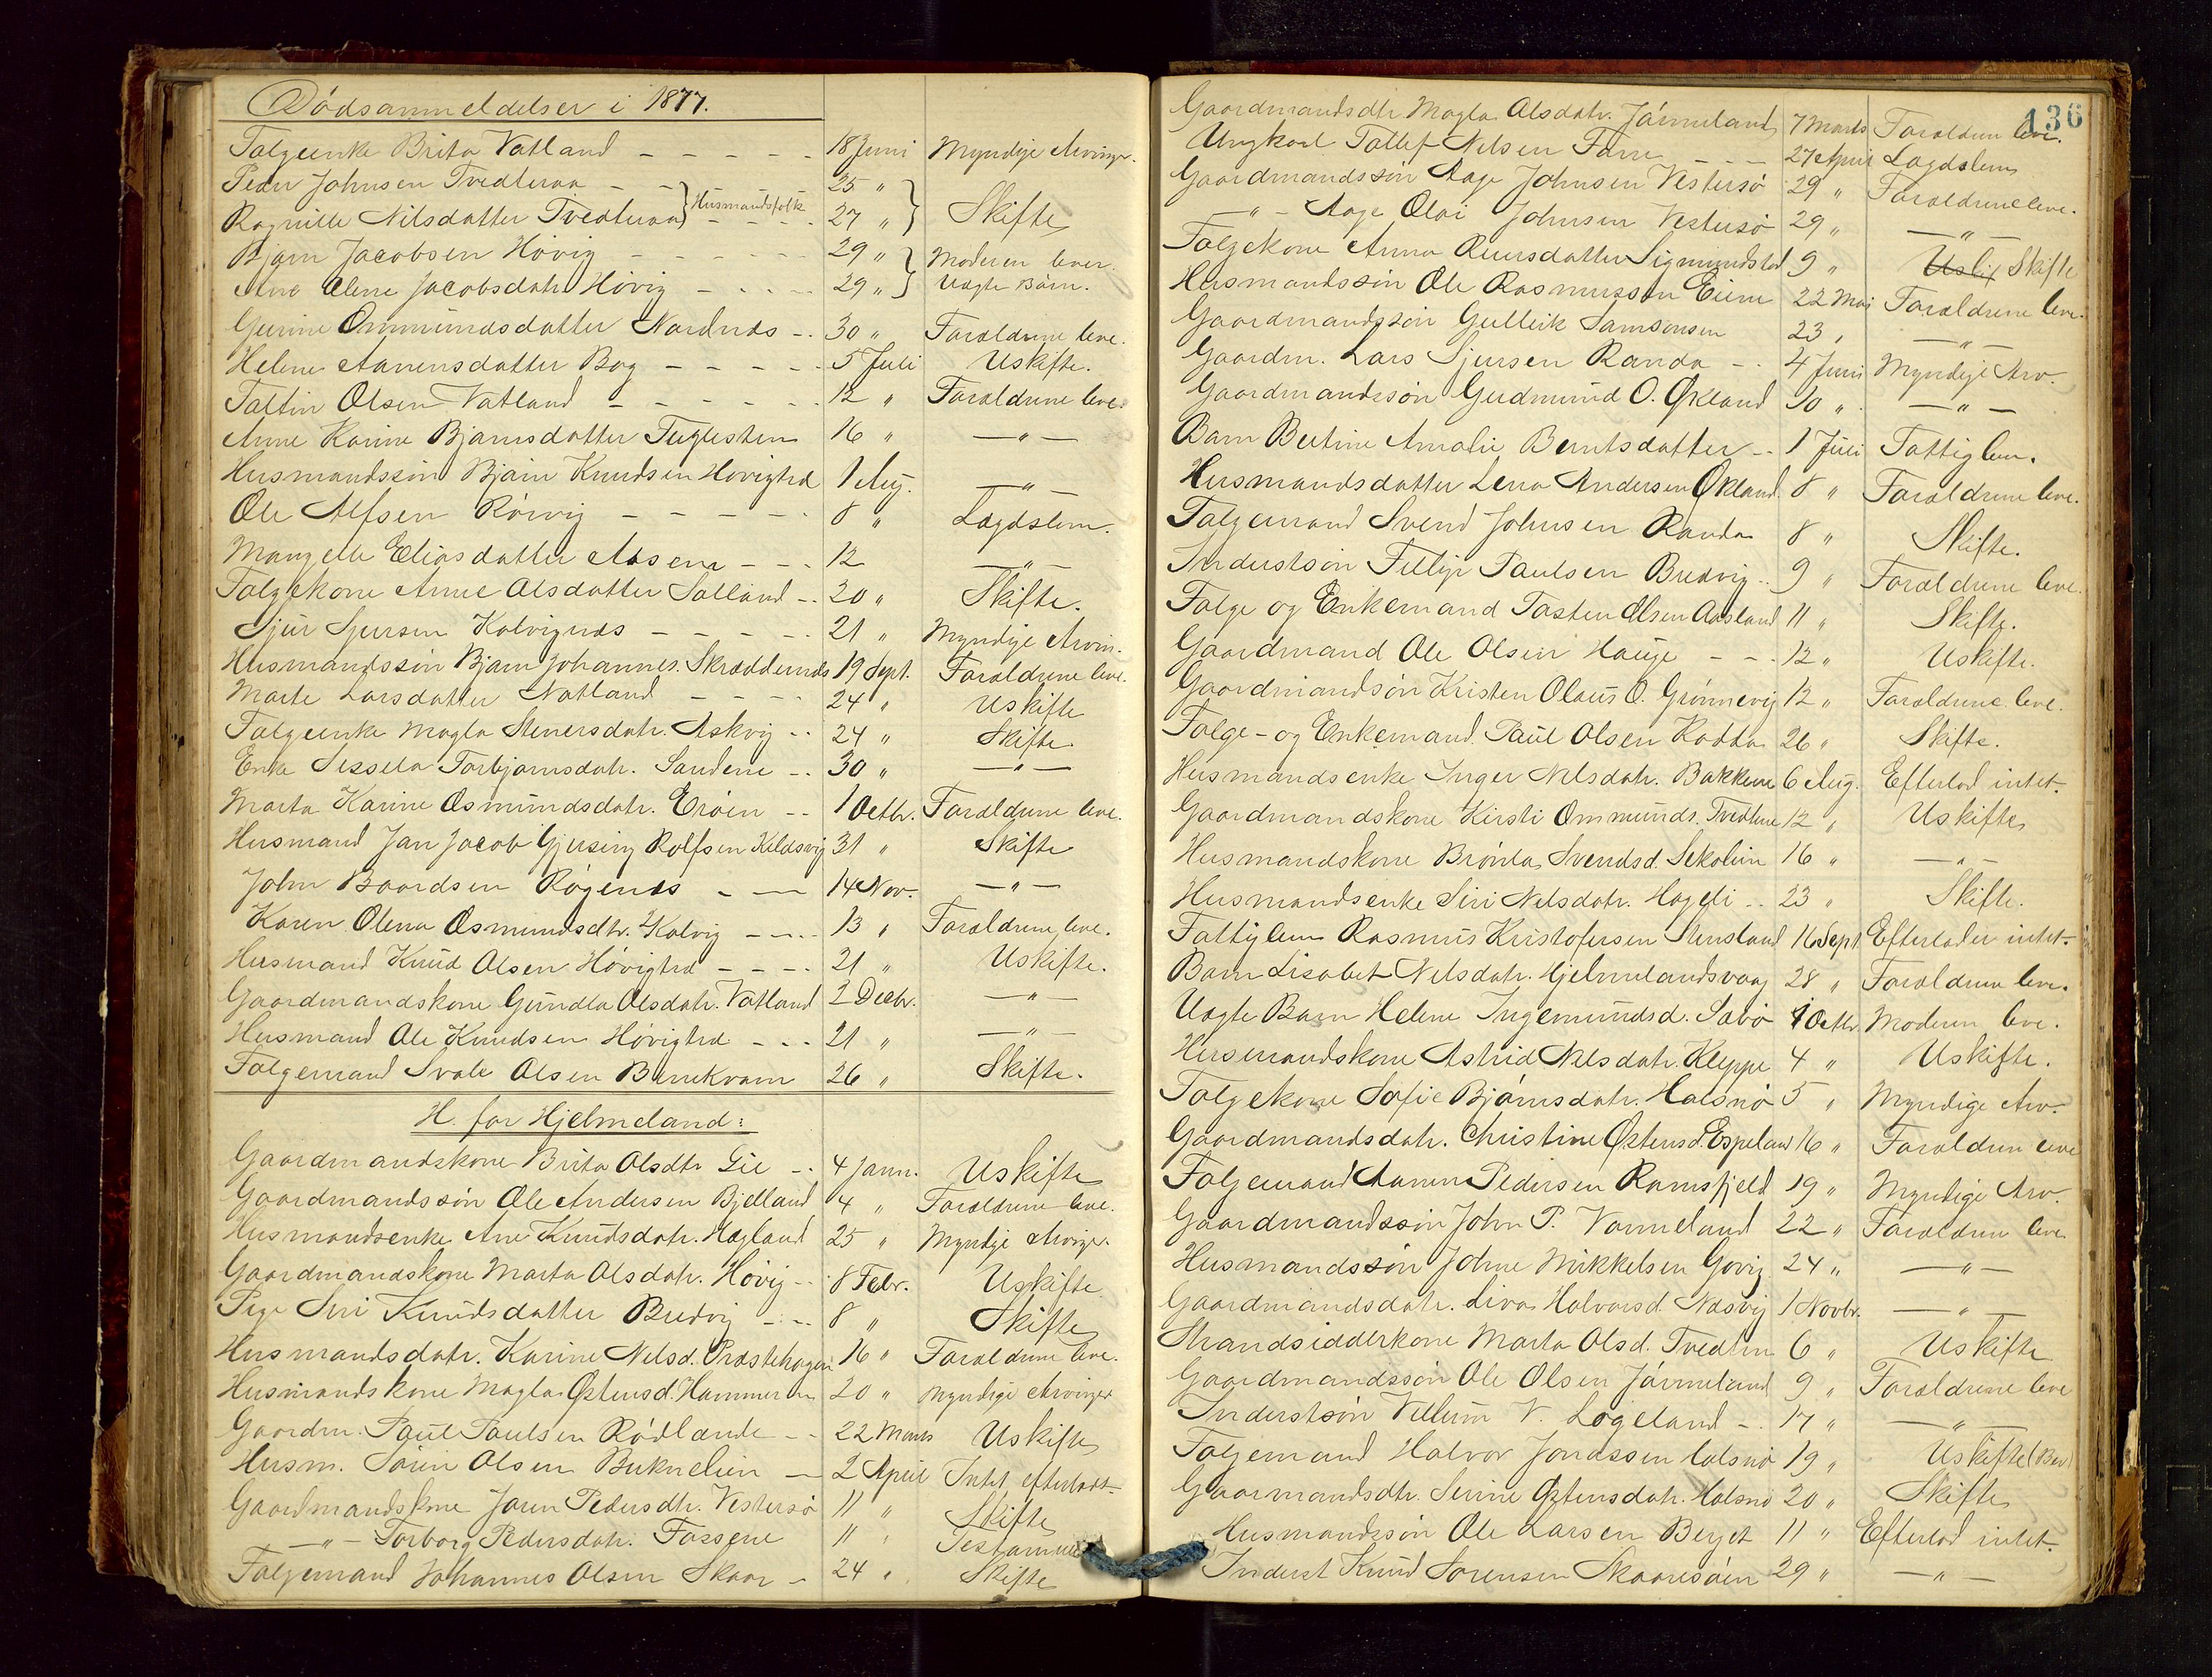 Dødsanmeldelser i 1877.
Folgeenke Brita Vatland - - - - - 18 Juni Myndige Arvinger.
Peder Johnsen Tvedteraa - - } Husmandsfolk 25 " } Skifte
Ragnilde Nilsdatter Tvedteraa - - - 27 "
Bjørn Jacobsen Høvig - - - - - - 29 " } Moderen lever.
Ane Elene Jacobsdatr. Høvig - - - - 29 " } Uægte Børn.
Gurine Ommundsdatter Nordnæs - - 30 " Forældrene leve.
Helene Aanensdatter Bog - - - - - 5 Juli Uskifte.
Taltin Olsen Vatland - - - - - - 12 " Forældrene leve.
Anne Karine Bjørnsdatter Fuglesten 16 " — " —
Husmandssøn Bjørn Knudsen Hovigtrd 1 Aug. — " —
Ole Alfsen Rørvig - - - - - 8 " Lægdslem.
Mangele Eliasdatter Aasen - - - 12 — " —
Folgekone Anne Olsdatter Solland - - 20 " Skifte.
Sjur Sjursen Kolvignæs - - - - - 21 " Myndige Arvin.
Husmandssøn Bjørn Johannes. Skreddernæs 19 Sept. Forældrene leve.
Marte Larsdatter Natland - - - - 24 " Uskifte
Folgeenke Magla Stenersdatr. Askvig - - 24 " Skifte
Enke Sessela Torbjørnsdatr. Sandene - - 30 " — " —
Marta Karine Osmundsdatr. Erøen - - 1 Octbr. Forældrene leve.
Husmand Jan Jacob Gjersing Rolfsen Keldsvig 31 " Skifte
John Baardsen Røgenæs - - — 14 Nov. — " —
Karen Olena Osmundsdtr. Kolvig - - - - 13 " Forældrene leve.
Husmand Knud Olsen Høvigtrd - - - - 21 " Uskifte.
Gaardmandskone Gundla Olsdatr. Vatland 2 Decbr. — " —
Husmand Ole Knudsen Høvigtrd - - - 21 " — " —
Folgemand Svale Olsen Barnekvam 26 " Skifte.
H. for Hjelmeland:
Gaardmandskone Brita Olsdtr Lie - - 4 Janu. Uskifte
Gaardmandssøn Ole Andersen Bjelland 4 " Forældrene leve.
Husmandsenke Ane Knudsdatr. Hagland 25 " Myndige Arvinge.
Gaardmandskone Marta Olsdatr. Høvig - - 8 Febr. Uskifte
Pige Siri Knudsdatter Bredvig - - - 8 " Skifte
Husmandsdatr. Karine Nelsd. Præstehagen 16 " Forældrene leve.
Husmandskone Magla Østensd. Hammeren 20 " Myndige Arvinger
Gaardm. Paul Paulsen Rødlande - - 22 Marts Uskifte
Husm. Søren Olsen Buknelien — 2 April Intet efterladt.
Gaardmandskone Joren Pedersdtr. Vestersø 11 " Skifte
— " — Torborg Pedersdatr. Fossene 11 "
Folgemand Johannes Olsen Skaar - 24 " Skifte
136
Gaardmandsdtr. Magla Olsdatr. Jørmeland 7 Marts Forældrene leve.
Ungkarl Tollef Nelsen Farre - - - 27 April Lægdslem
Gaardmandssøn Aage Johnsen Vestersø 29 " Forældrene leve.
— " — Aage Olai Johnsen Vestersø 29 " — " —
Folgekone Anna Reiersdatter Sigmundstad 9 " Skifte
Husmandssøn Ole Rasmussen Eiene 22 Mai Forældrene leve.
Gaardmandssøn Gulleik Samsonsen 23 " — " —
Gaardm. Lars Sjursen Randa - - 4 Juni Myndige Arv.
Gaardmandssøn Gudmund O. Økland 10 " — " —
Barn Bertine Amalie Berntsdatter - - 1 Juli Fattiglem.
Husmandsdatter Lena Andersen Økland 8 " Forældrene leve.
Folgemand Svend Johnsen Randa 8 " Skifte.
Inderstsøn Fillip Paulsen Bredvig - - 9 " Forældrene leve.
Folge og Enkemand Tosten Olsen Aasland 11 " Skifte.
Gaardmand Ole Olsen Hauge - - - 12 " Uskifte.
Gaardmandsøn Kristen Olaus O. Grønnevig 12 " Forældrene leve.
Folge- og Enkemand Paul Olsen Kodda 26 " Skifte.
Husmandsenke Inger Nelsdatr. Bakkene 6 Aug. Efterlod intet.
Gaardmandskone Kirsti Ommunds. Tvedtene 12 " Uskifte
Husmandskone Brønla Svendsd. Sekolein 16 " — " —
Husmandsenke Siri Nelsdatr. Hageli - - 23 " Skifte.
Fattiglem Rasmus Kristofersen Stensland 16 Sept. Efterlader intet.
Barn Lisabet Nelsdatr. Hjelmelandsvaag 28 " Forældrene leve.
Uægte Barn Helene Ingemundsd. Sabø 1 Octbr. Moderen leve.
Husmandskone Astrid Nelsdatr. Kleppe 4 " Uskifte.
Folgekone Sofie Bjørnsdatr. Halsnø 5 " Myndige Arv.
Gaardmandsdatr. Christine Østensd. Espeland 16 " Forældren leve
Folgemand Aanen Pedersen Ramsfjeld 19 " Myndige Arv.
Gaardmandssøn John P. Vormeland 22 " Forældren leve
Husmandssøn Johne Mikkelsen Govig 24 " — " —
Gaardmandsdatr. Liva Halvorsd. Næsvig 1 Novbr. — " —
Strandsidderkone Marta Olsd. Tvedten 6 " Uskifte
Gaardmandssøn Ole Olsen Jørmeland 9 " Forældrene leve
Inderstsøn Vellum V. Logeland - - 17 " — " —
Folgemand Halvor Jonassen Halsnø 19 " Uskifte (Bev)
Gaarmandsdtr. Serine Østensdatr. Halsnø 20 " Skifte
Husmandssøn Ole Larsen Berget 11 " Efterlod intet.
Inderst Knud Sørensen Skaaresøen 29 " — " —